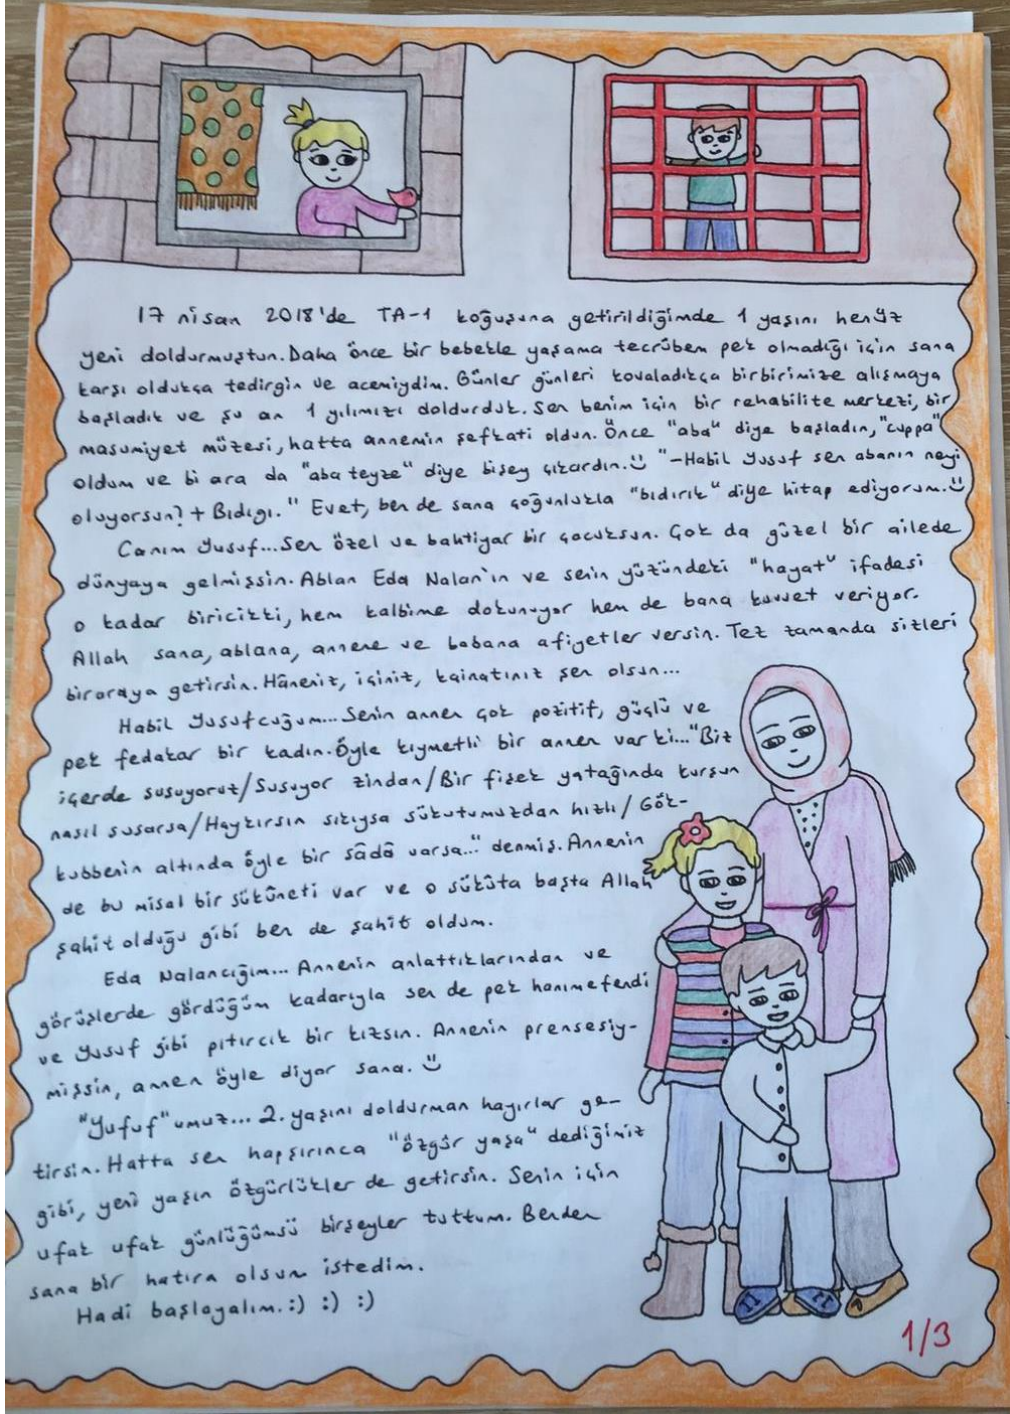 17 nisan 2018'de TA-1 koğuşuna getirildiğimde 1 yaşını henüz
yeni doldurmuştun. Daha önce bir bebekle yaşama tecrübem pek olmadığı için sana
karşı oldukça tedirgin ve acemiydim. Günler günleri kovaladıkça birbirimize alışmaya
başladık ve şu an 1 yılımızı doldurduk. Sen benim için bir rehabilite merkezi, bir
masumiyet müzesi, hatta annemin şefkati oldun. Önce "aba" diye başladın, "cuppa"
oldum ve bi ara da "aba teyze" diye bişey çıkardın. "-Habil Yusuf sen abanın neyi
oluyorsun? + Bıdıgı." Evet, ben de sana çoğunlukla "bıdırık" diye hitap ediyorum.
Canım Yusuf... Sen özel ve bahtiyar bir çocuksun. Çok da güzel bir ailede
dünyaya gelmişsin. Ablan Eda Nalan'ın ve senin yüzündeki "hayat" ifadesi
o kadar biricikki, hem kalbime dokunuyor hem de bana kuvvet veriyor.
Allah sana, ablana, annene ve babana afiyetler versin. Tez zamanda sizleri
biraraya getirsin. Hâneniz, içiniz, kainatınız şen olsun...
Habil Yusufcuğum... Senin annen çok pozitif, güçlü ve
pek fedakar bir kadın. Öyle kıymetli bir annen var ki... "Biz
içerde susuyoruz/Susuyor zindan/Bir fişek yatağında kurşun
nasıl susarsa/Haykırsın sıkıysa sükutumuzdan hızlı/Gök-
kubbenin altında öyle bir sâdâ varsa..." denmiş. Annenin
de bu misal bir sükûneti var ve o sükûta başta Allah
şahit olduğu gibi ben de şahit oldum.
Eda Nalancığım... Annenin anlattıklarından ve
görüşlerde gördüğüm kadarıyla sen de pek hanımefendi
ve Yusuf gibi pıtırcık bir kızsın. Annenin prensesiy-
mişsin, annen öyle diyor sana.
"Yufuf"umuz... 2. yaşını doldurman hayırlar ge-
tirsin. Hatta sen hapşırınca "özgür yaşa" dediğimiz
gibi, yeni yaşın özgürlükler de getirsin. Senin için
ufak ufak günlüğümsü birşeyler tuttum. Benden
sana bir hatıra olsun istedim.
Hadi başlayalım. :) :) :)
1/3